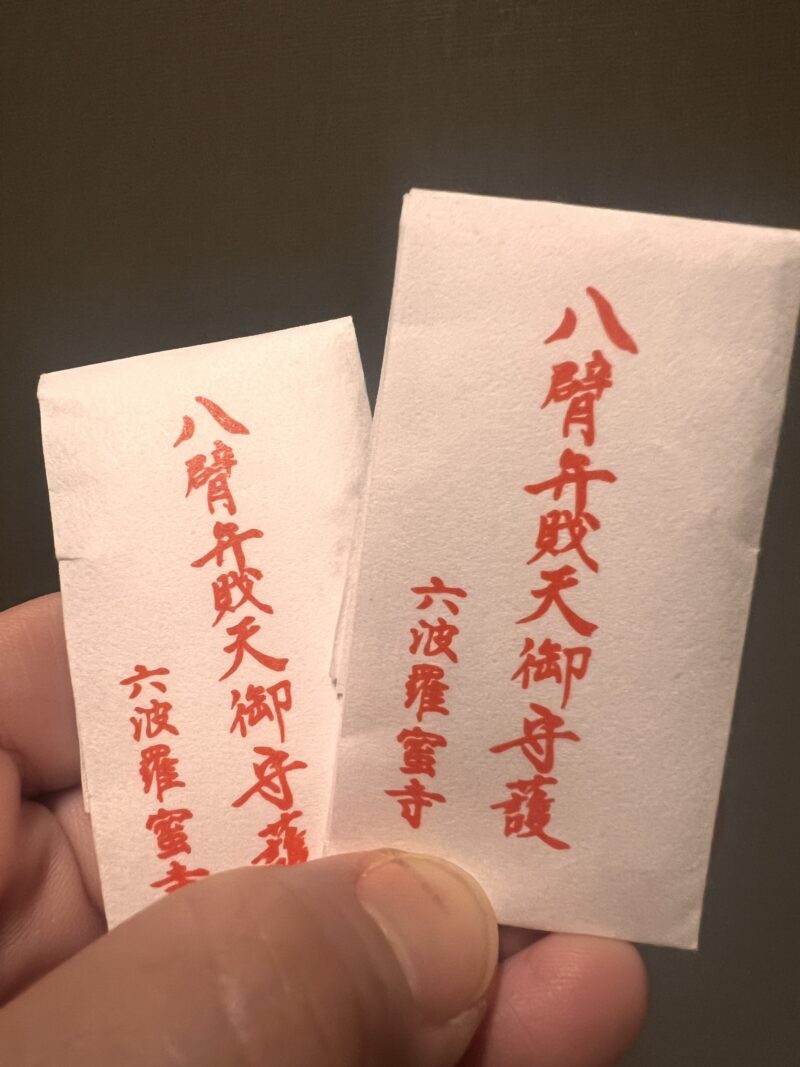 八臂弁戝天御守護
六波羅蜜寺
八臂弁戝天御守護
六波羅蜜寺